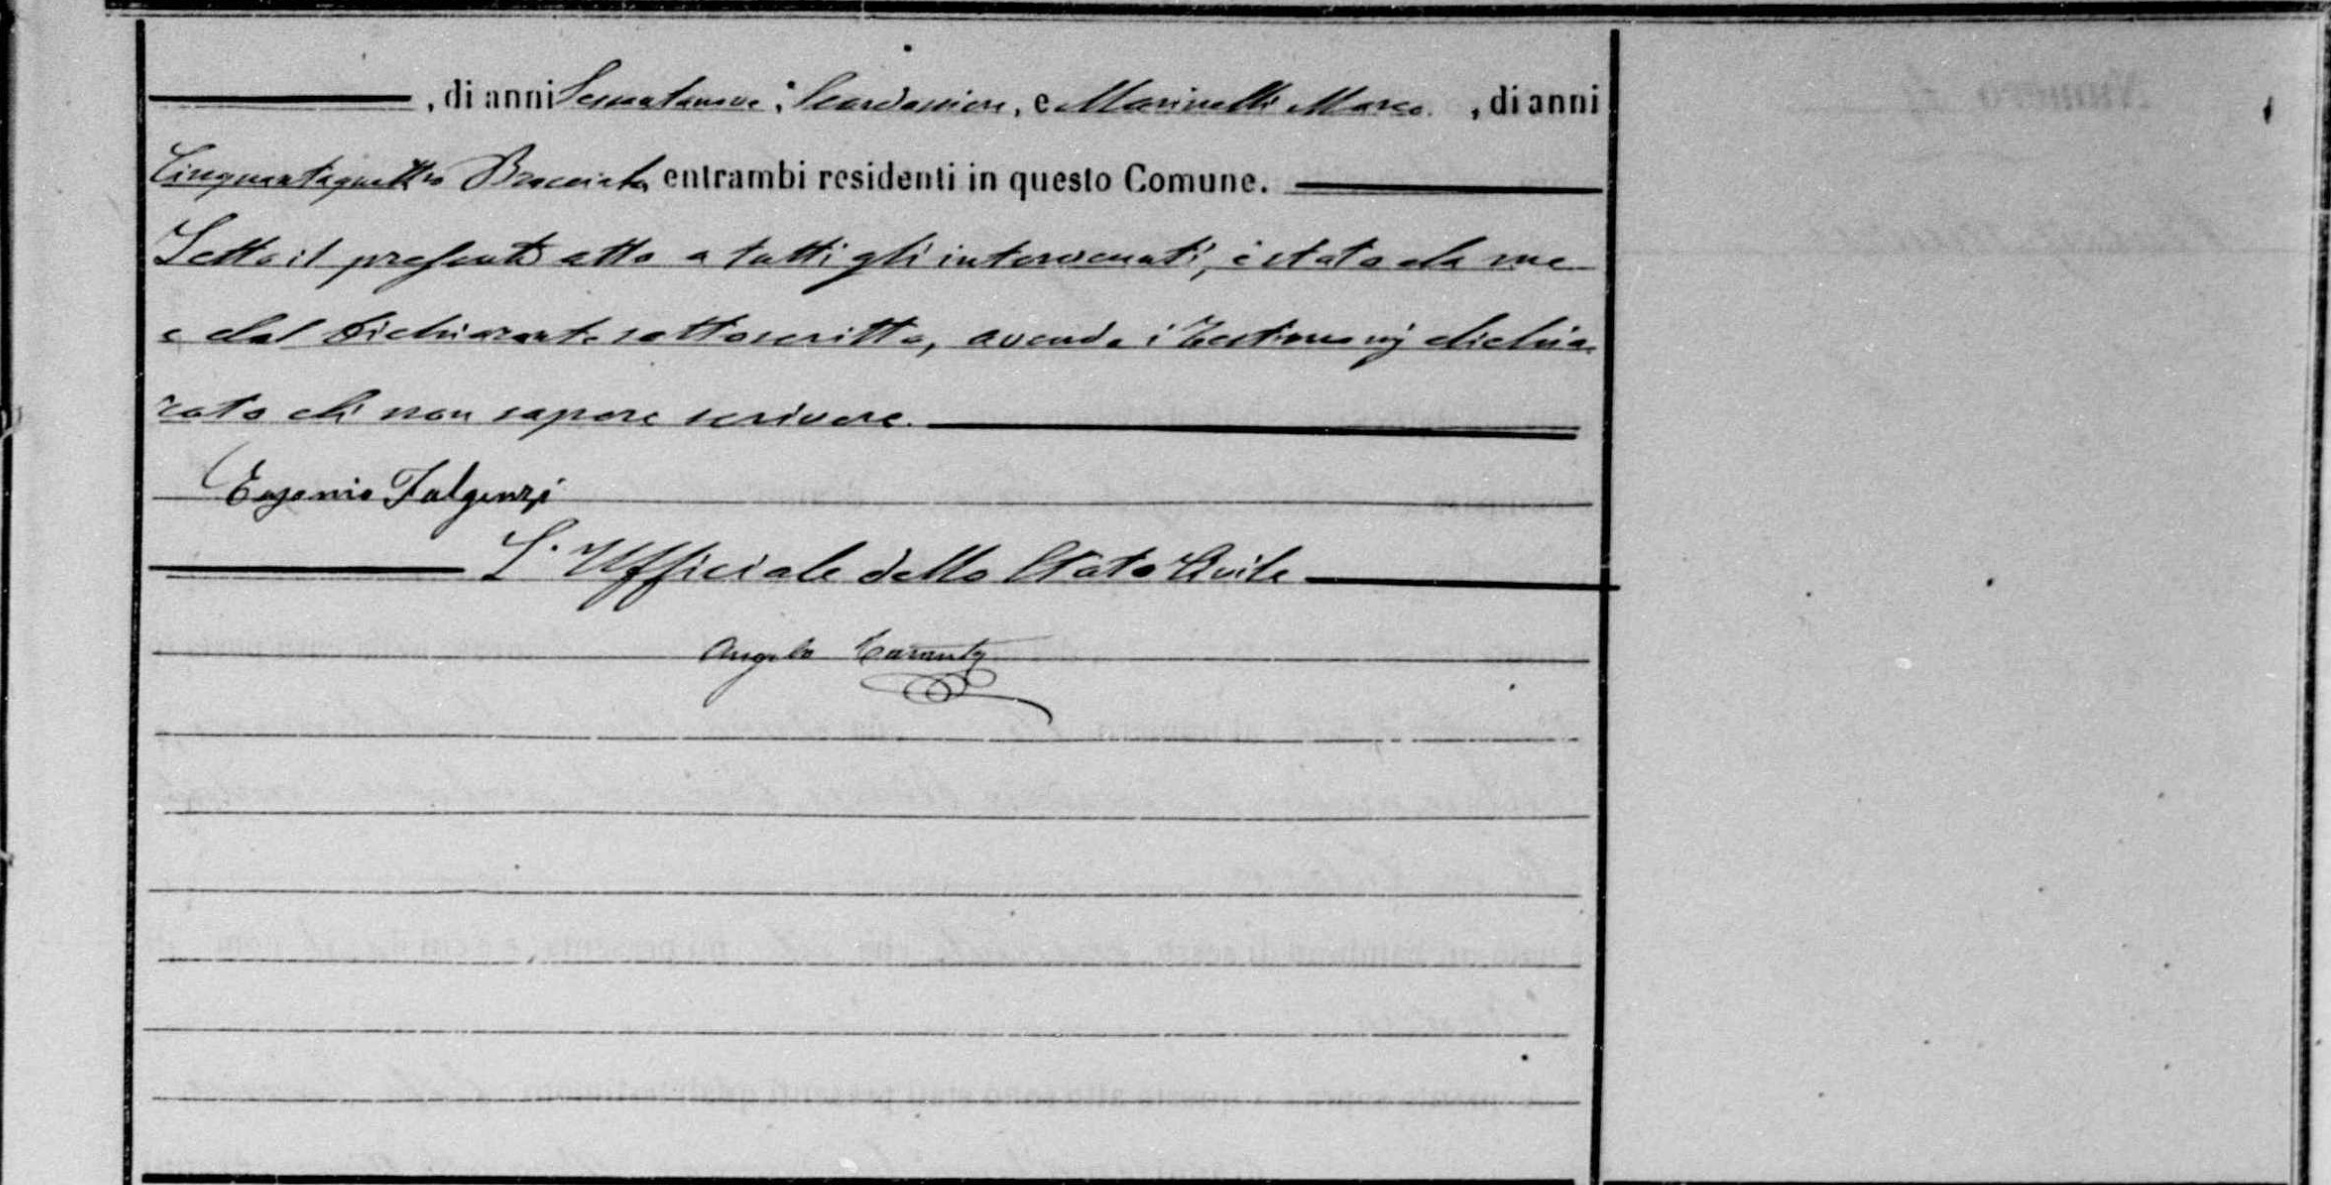 , di anni Sessantanove, Scardassiere, e Marinelli Marco. , di anni
Cinquantaquattro Bracciante entrambi residenti in questo Comune.
Letto il presente atto a tutti gli intervenuti, è stato da me
e dal Dichiarante sottoscritto, avendo i Testimonj dichia-
rato di non sapere scrivere.
Eugenio Fulgenzi
L'Ufficiale dello Stato Civile
Angelo